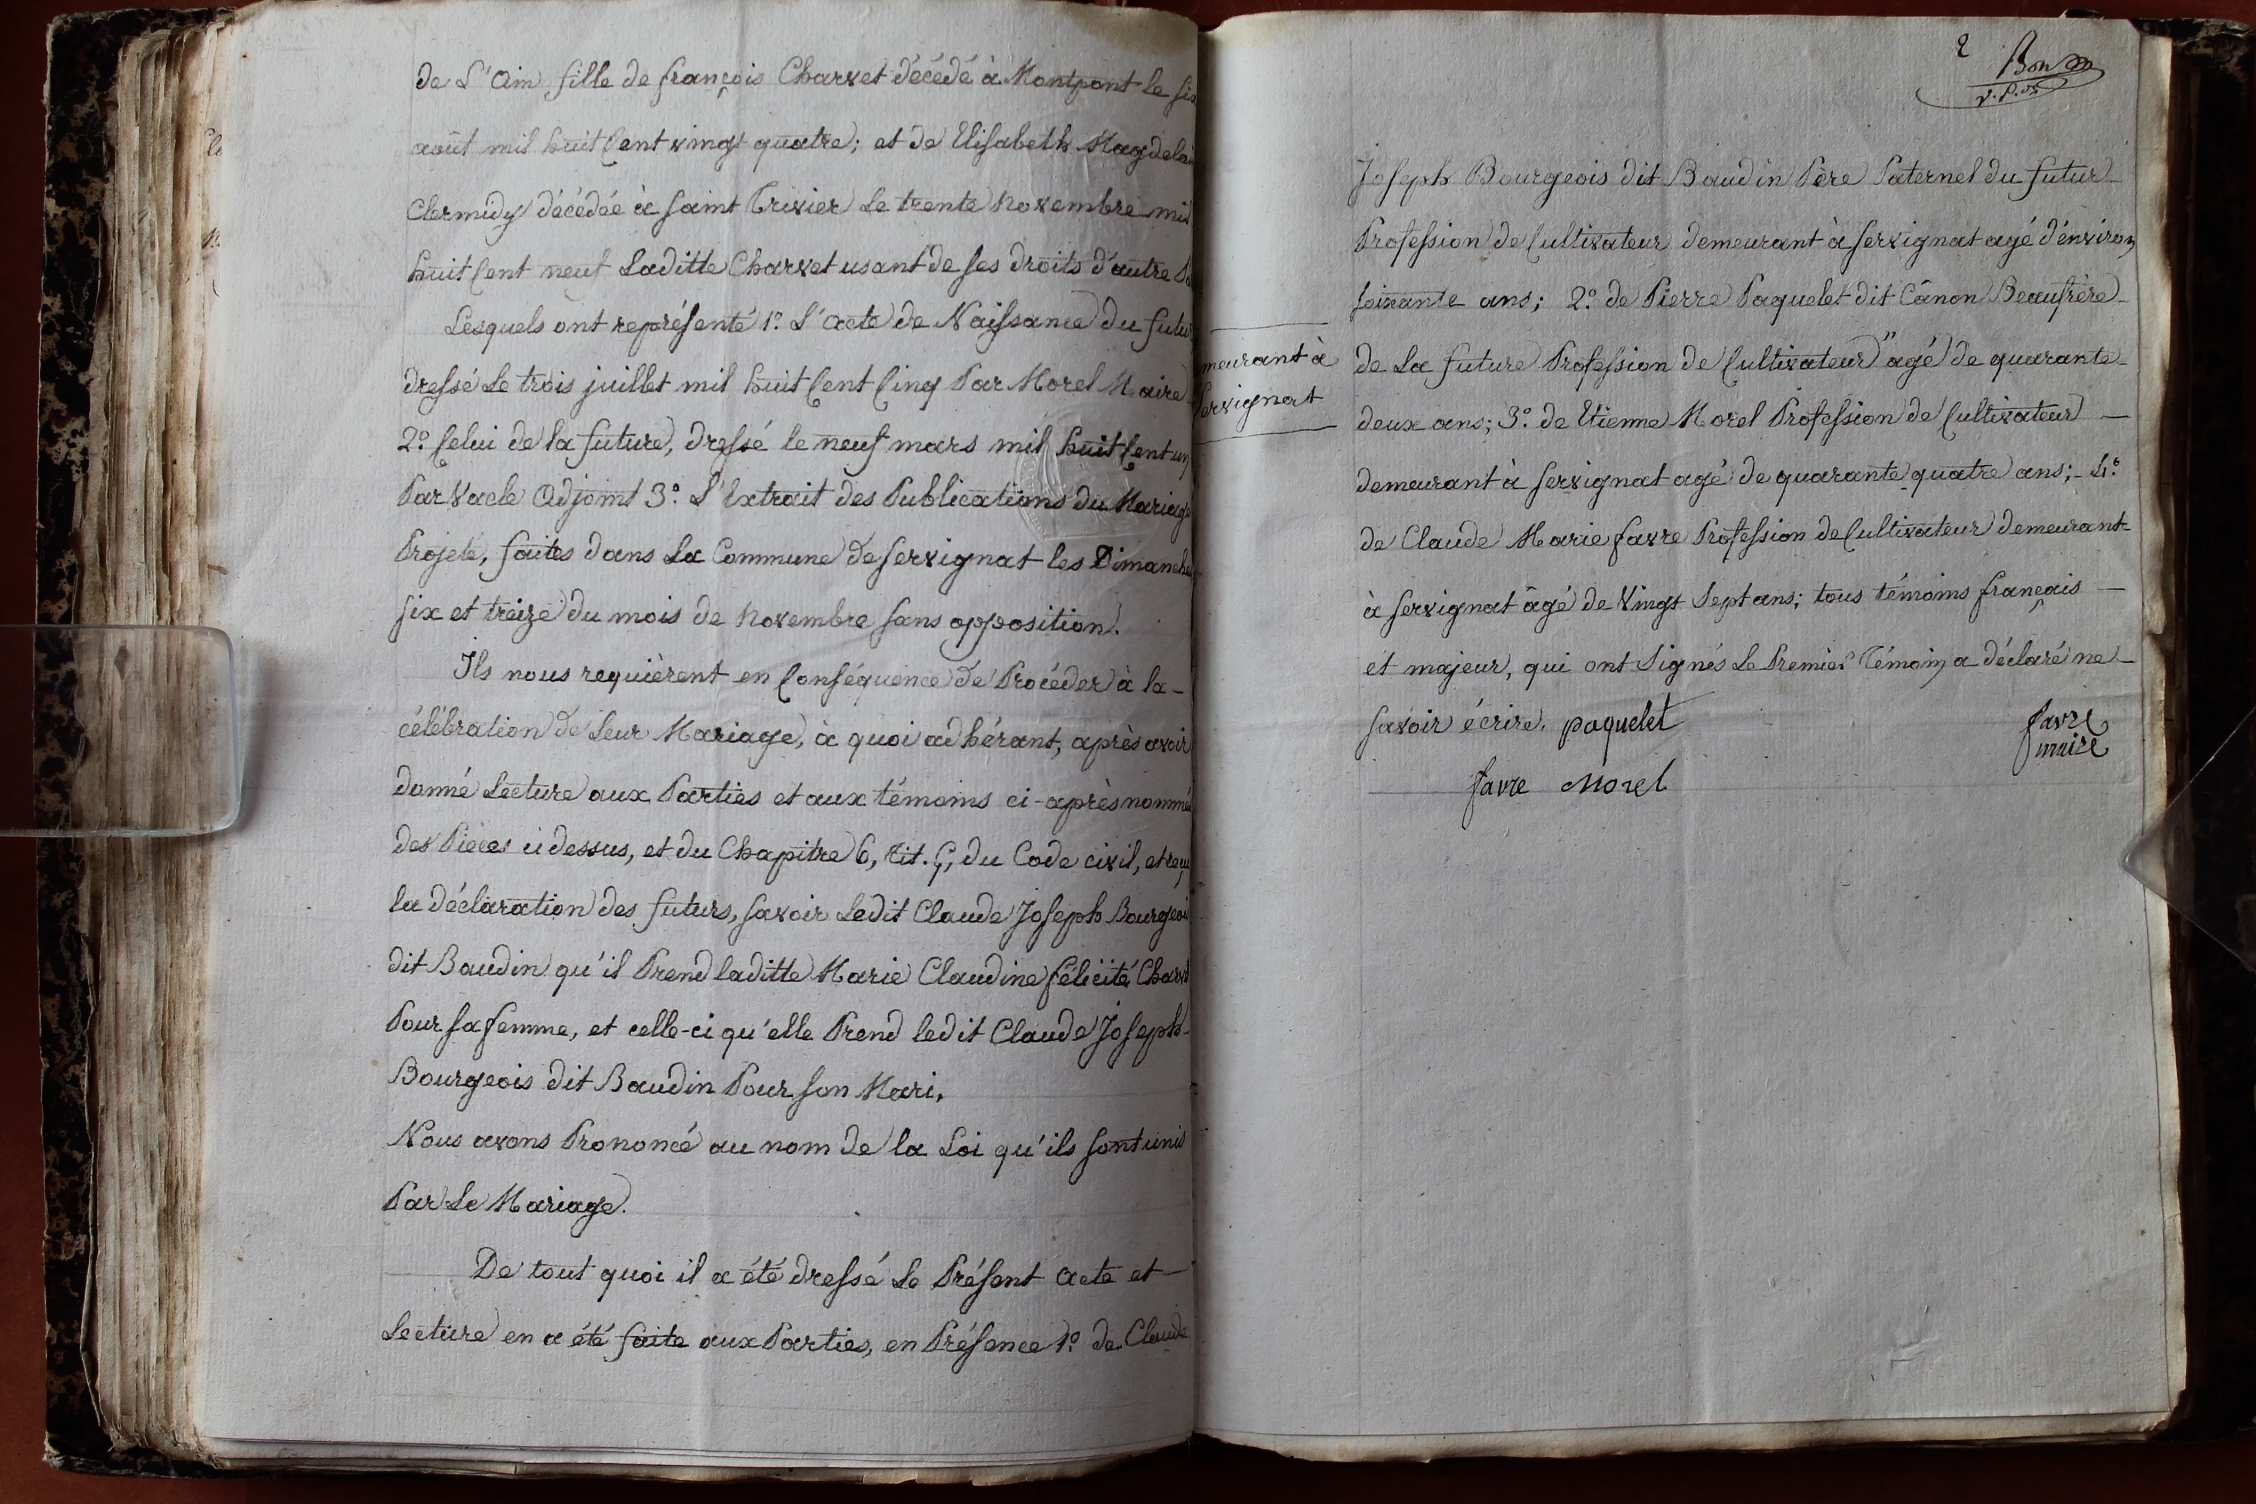 de L'ain fille de françois Charvet décédé à Montpont le six
août mil huit Cent vingt quatre; et de Elisabeth Magdelai
Clermidy décédée à saint Trivier Le trente Novembre mil
huit Cent neuf Laditte Charvet usant de ses droits d'autre Pa
Lesquels ont représenté 1º. L'acte de Naissance du futur
dressé Le trois juillet mil huit Cent Cinq Par Morel Maire
2º. Celui de la future, dressé le neuf mars mil huit Cent un
Par Vacle Adjoint 3º. L'Extrait des Publications du Mariage
Projeté, faites dans La Commune de servignat les Dimanches
six et treize du mois de Novembre sans opposition.
Ils nous requièrent en Conséquence de Procéder à la
célébration de Leur Mariage, à quoi adhérant, après avoir
donné Lecture aux Parties et aux témoins ci-après nommés
des Pièces ci dessus, et du Chapitre 6, tit. 5, du Code civil, et reçu
la déclaration des futurs, savoir Ledit Claude Joseph Bourgeois
dit Baudin qu'il Prend laditte Marie Claudine félicité Charvet
Pour sa femme, et celle-ci qu'elle Prend ledit Claude Joseph
Bourgeois dit Baudin Pour son Mari.
Nous avons Prononcé au nom de la Loi qu'ils sont unis
Par Le Mariage.
De tout quoi il a été dressé Le Présent acte et
Lecture en a été faite aux Parties, en Présence 1º. de Claude
2
Joseph Bourgeois dit Baudin Père Paternel du futur
Profession de Cultivateur demeurant à servignat agé d'environ
soixante ans; 2º. de Pierre Paquelet dit Cânon Beaufrère
de La future Profession de Cultivateur" agé de quarante
meurant à
servignat
deux ans; 3º. de Etienne Morel Profession de Cultivateur
demeurant à servignat agé de quarante quatre ans; 4º.
de Claude Marie favre Profession de Cultivateur demeurant
à servignat âgé de Vingt Sept ans; tous témoins français
et majeur, qui ont Signés Le Premier Témoin a déclaré ne
savoir écrire. paquelet
favre
maire
favre Morel